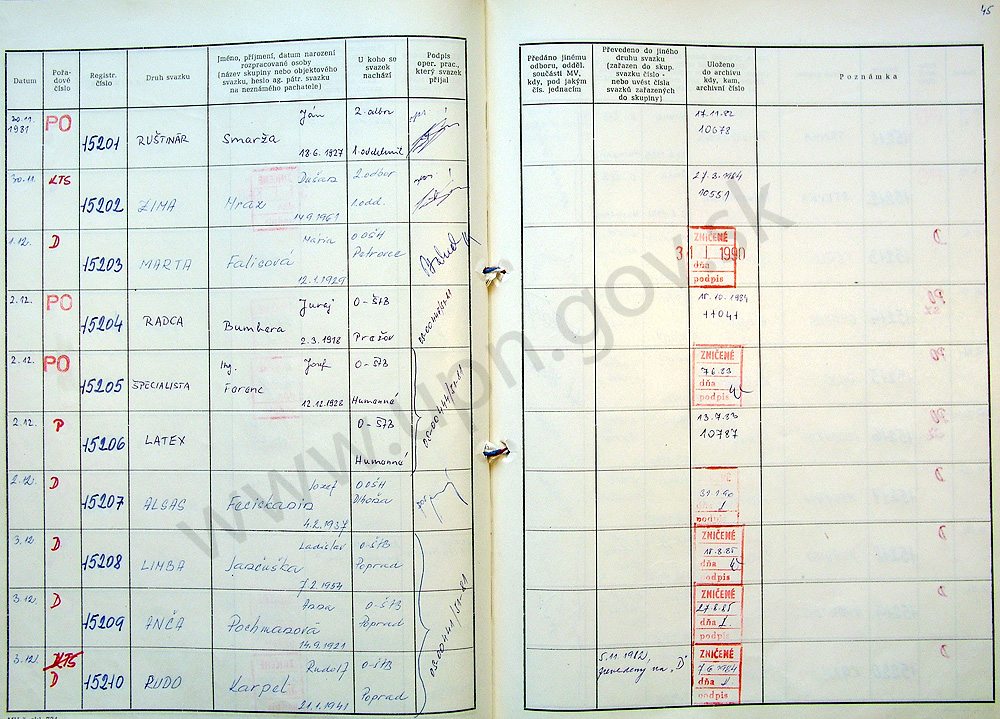 45
Datum
Pořadové číslo
Registr. číslo
Druh svazku
Jméno, příjmení, datum narození
rozpracované osoby
(název skupiny nebo objektového
svazku, heslo ag. pátr. svazku
na neznámého pachatele)
U koho se
svazek
nachází
Podpis
oper. prac.,
který svazek
přijal
Předáno jinému
odboru, odděl.
součásti MV,
kdy, pod jakým
čís. jednacím
Převedeno do jiného
druhu svazku
(zařazen do skup.
svazku číslo -
nebo uvést čísla
svazků zařazených
do skupiny)
Uloženo
do archivu
kdy, kam,
archivní číslo
Poznámka
30.11. 1981 PO 15201 RUŠTINÁR Ján Smarža 18.6.1927 2. odbor 17.11.82 10678
30.11. KTS 15202 ZIMA Dušan Mráz 14.9.1961 2. odbor 1. odd. 27.3.1984 10551
1.12. D 15203 MARTA Mária Falisová 12.1.1929 OOŠH Petrovce ZNIČENÉ 31 1 1990 dňa podpis D
2.12. PO 15204 RADCA Juraj Bumbera 2.3.1918 O-ŠtB Prešov 15.10.1984 11041
2.12. PO 15205 ŠPECIALISTA Ing. Jozef Ferenc 12.12.1928 O-ŠtB Humenné ZNIČENÉ 7.6.83 dňa podpis
2.12. P 15206 LATEX O-ŠtB Humenné 13.7.83 10787
2.12. D 15207 Jozef 4.2.1937 OOŠH D
3.12. D 15208 LIMBA Ladislav 7.2.1954 O-ŠtB Poprad ZNIČENÉ 15.8.85 dňa podpis D
3.12. D 15209 ANČA Anna Pochmanová 14.9.1921 O-ŠtB Poprad ZNIČENÉ 27.8.85 dňa podpis D
3.12. KTS D 15210 RUDO Rudolf Karpel 21.1.1941 O-ŠtB Poprad 5.11.1982 prevedený na "D" ZNIČENÉ 7.6.1984 dňa podpis
www.upn.gov.sk